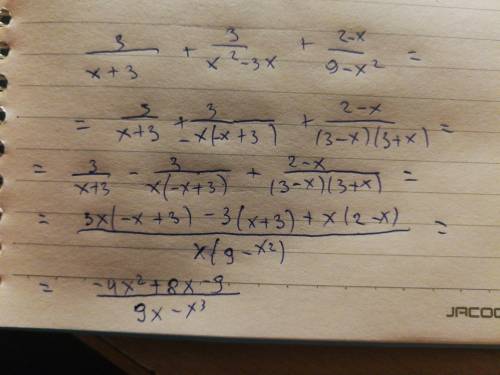 3/(x+3) + 3/(x²-3x) + (2-x)/(9-x²) =
= 3/(x+3) + 3/(-x(-x+3)) + (2-x)/((3-x)(3+x)) =
= 3/(x+3) - 3/(x(-x+3)) + (2-x)/((3-x)(3+x)) =
= (3x(-x+3) - 3(x+3) + x(2-x))/(x(9-x²)) =
= (-4x²+8x-9)/(9x-x³)